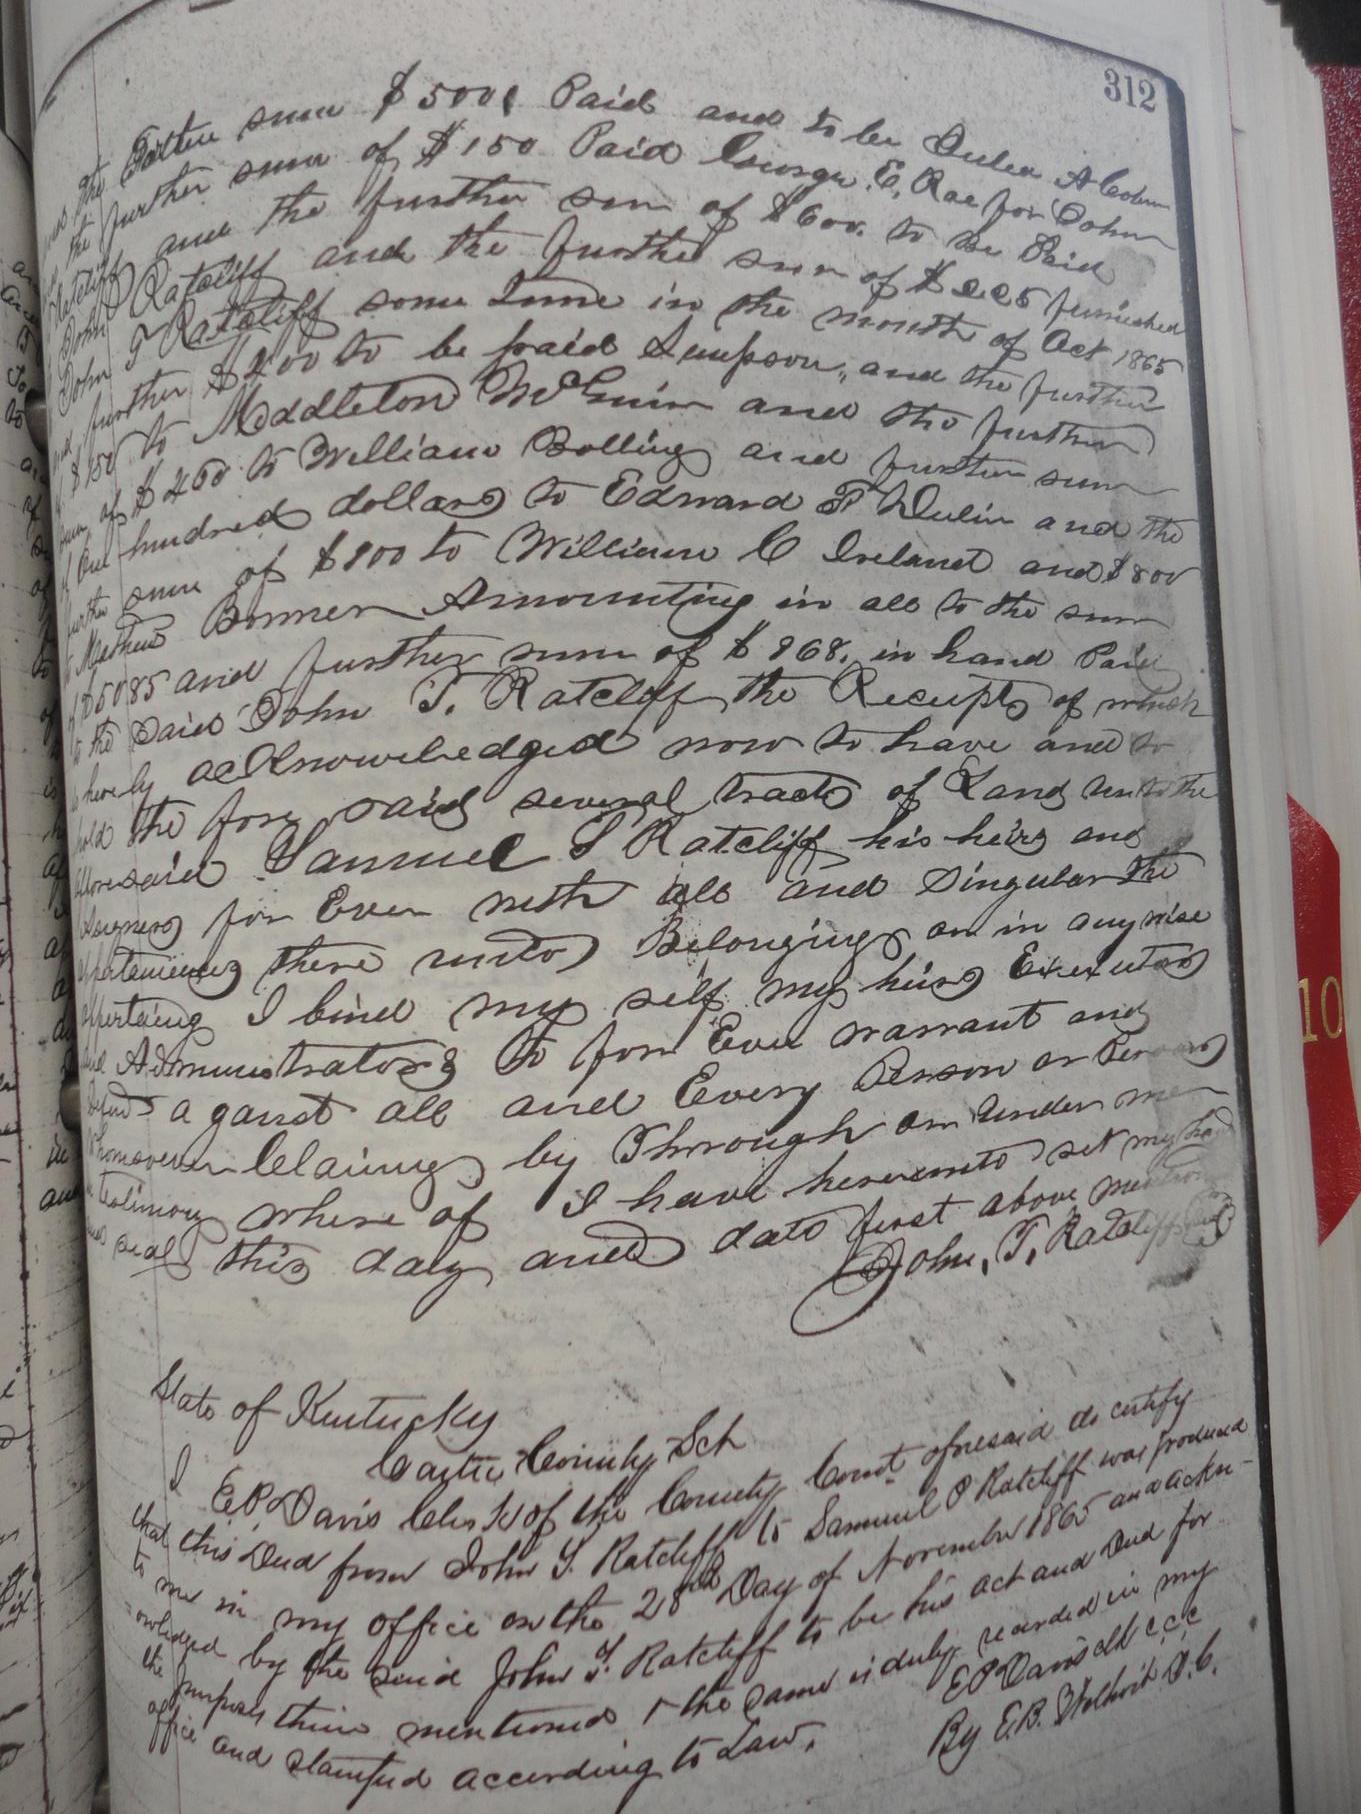 312
the Further sum $500 Paid and to be
the further sum of $150 Paid George E. Rae for John
Ratcliff and the further sum of $600. to be Paid
John Ratcliff and the further sum of $225 furnished
John T Ratcliff some time in the month of Oct 1865
and further $200 to be paid Simpson, and the further
$150 to Middleton McGuire and the further
sum of $260 to William Bolling and further sum
of One hundred dollars to Edward F Dulin and the
further sum of $800 to William C Ireland and $800
to Mathew Bonner Amounting in all to the sum
of $5085 and further sum of $868. in hand Paid
to the said John T. Ratcliff the Receipts of which
is hereby acKnowledged now to have and to
hold the fore said several tracts of Land unto the
afforesaid Samuel S Ratcliff his heirs and
Assigners for Ever with all and Singular the
appertainences there unto Belonging or in any wise
appertaing I bind my self my heirs Executors
and Administrators to for Ever warrant and
defend a ganst all and Every Person or Persons
Whomsoever Claiming by Through or under me
in testimony where of I have hereunto set my hand
and seal this day and date first above mention
John, T, Ratcliff
State of Kentucky
Carter County Sct
I E.P. Davis Clerk of the County Court aforesaid do certify
that this Deed from John T. Ratcliff to Samuel P Ratcliff was produced
to me in my office on the 28th Day of November 1865 and ackn-
-owledged by the said John T. Ratcliff to be his act and Deed for
the purposes therein mentioned & the same is duly recorded in my
office and stamped according to Law.
E P Davis Clk C.C.C
By E.B. D.C.
10